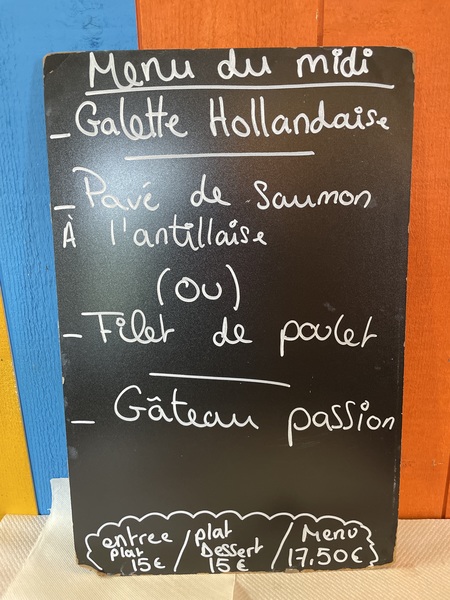 Menu du midi
- Galette Hollandaise
- Pavé de saumon
À l'antillaise
(OU)
- Filet de poulet
- Gâteau passion
entree / plat / Menu
plat Dessert 17,50€
15€ 15€